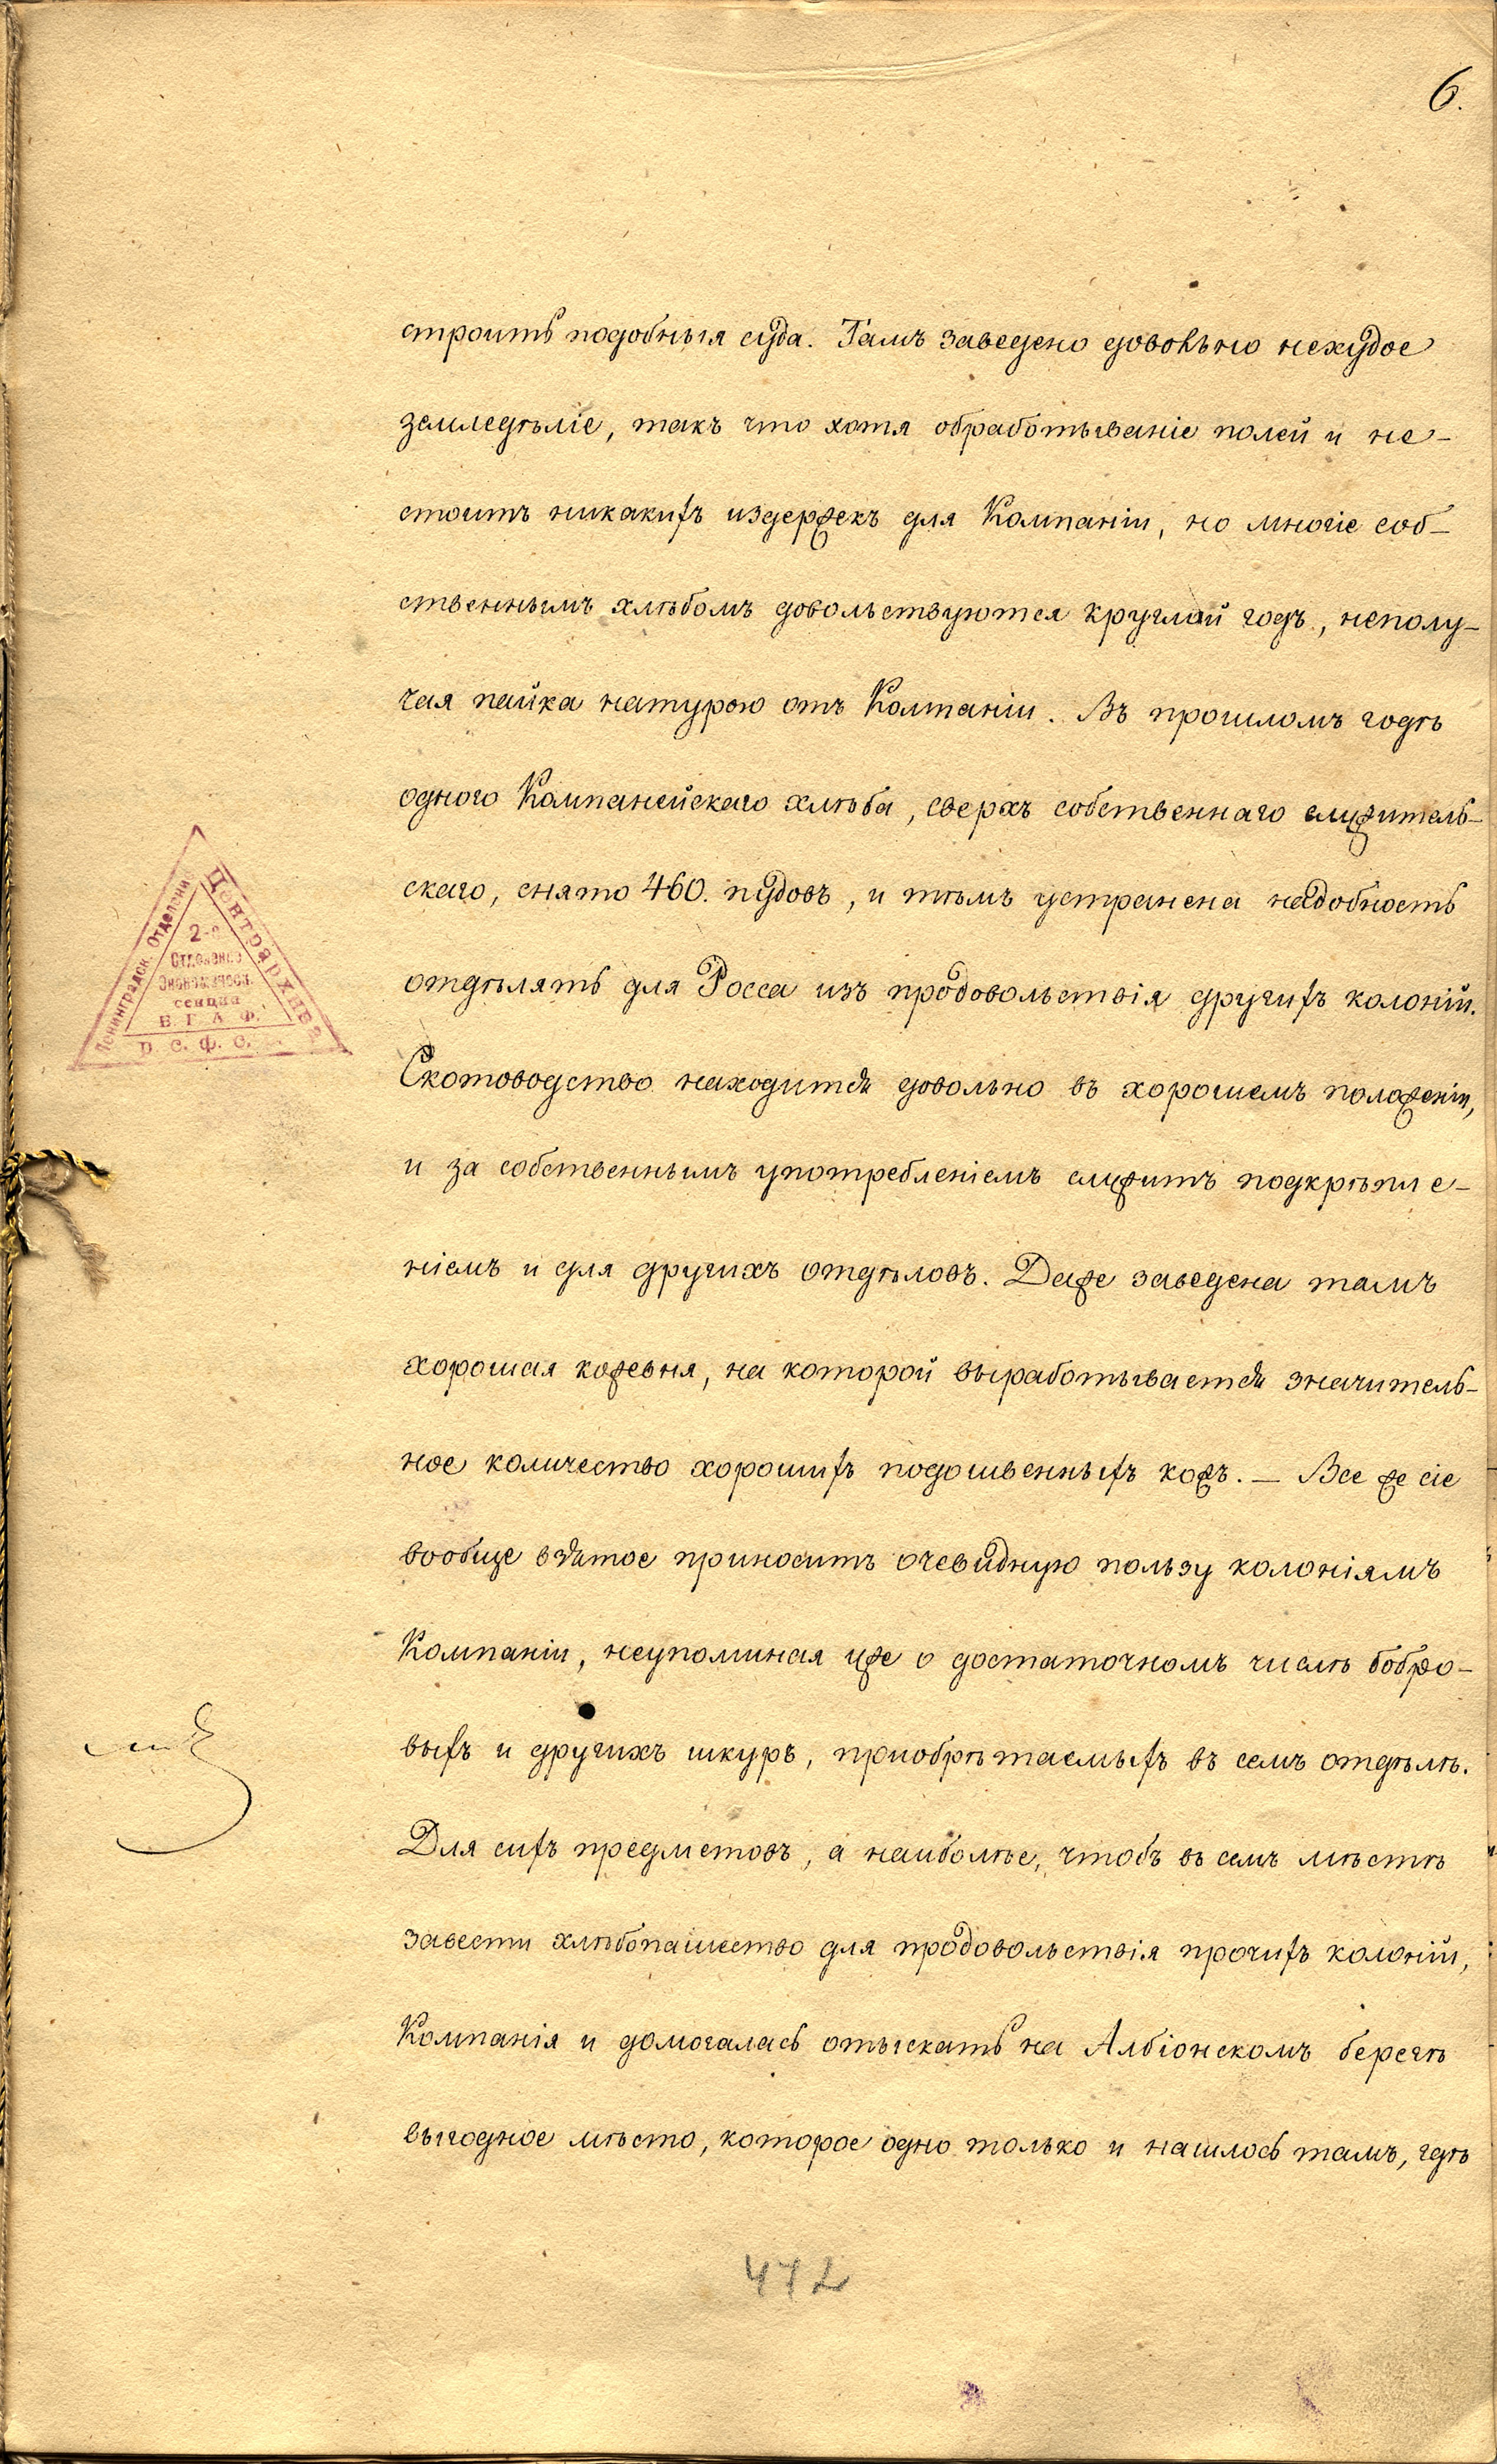 6.
строить подобныя суда. Тамъ заведено довольно нехудое
земледѣліе, такъ что хотя обработываніе полей и не-
стоитъ никакихъ издержекъ для Компаніи, но многіе соб-
ственнымъ хлѣбомъ довольствуются круглый годъ, неполу-
чая пайка натурою отъ Компаніи. Въ прошломъ годѣ
одного Компанейскаго хлѣба, сверхъ собственнаго служитель-
скаго, снято 460. пудовъ, и тѣмъ устранена надобность
отдѣлять для Росса изъ продовольствія другихъ колоній.
Скотоводство находится довольно въ хорошемъ положеніи,
и за собственнымъ употребленіемъ служитъ подкрѣпле-
ніемъ и для другихъ отдѣловъ. Даже заведена тамъ
хорошая кожевня, на которой выработывается значитель-
ное количество хорошихъ подошвенныхъ кожъ. — Все же сіе
вообще взятое приноситъ очевидную пользу колоніямъ
Компаніи, неупоминая уже о достаточномъ числѣ бобро-
выхъ и другихъ шкуръ, пріобрѣтаемыхъ въ семъ отдѣлѣ.
Для сихъ предметовъ, а наиболѣе, чтобъ въ семъ мѣстѣ
завести хлѣбопашество для продовольствія прочихъ колоній,
Компанія и домогалась отыскать на Албіонскомъ берегѣ
выгодное мѣсто, которое одно только и нашлось тамъ, гдѣ
Ленинградск. Отделение
Центрархива
2-е
Отделение
Экономическ.
секция
Е. Г. А. Ф.
Р. С. Ф. С.
472